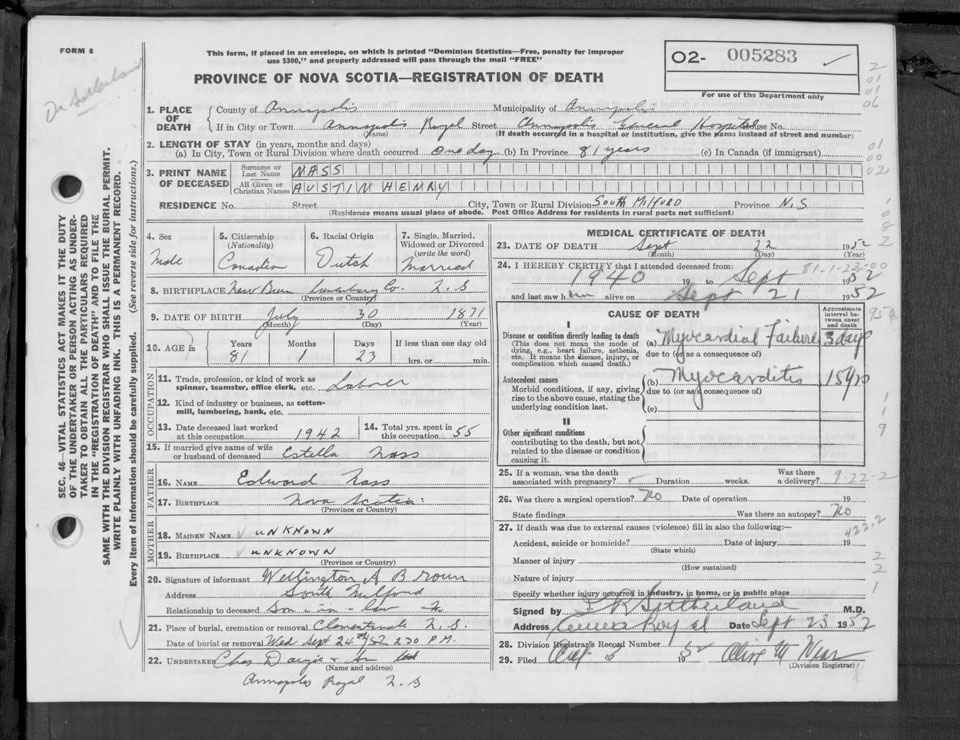 FORM 6
This form, if placed in an envelope, on which is printed "Dominion Statistics—Free, penalty for improper
use $300," and properly addressed will pass through the mail "FREE"
O2- 005283 ✓
For use of the Department only
PROVINCE OF NOVA SCOTIA—REGISTRATION OF DEATH
1. PLACE OF DEATH
County of Annapolis Municipality of Annapolis
If in City or Town Annapolis Royal Street Annapolis General Hospital House No.
(Name) (If death occurred in a hospital or institution, give the name instead of street and number)
2. LENGTH OF STAY (in years, months and days)
(a) In City, Town or Rural Division where death occurred one day (b) In Province 81 years (c) In Canada (if immigrant)
3. PRINT NAME OF DECEASED
Surname or Last Name NASS
All Given or Christian Names AUSTIN HENRY
RESIDENCE No. Street City, Town or Rural Division SOUTH MILFORD Province N.S
(Residence means usual place of abode. Post Office Address for residents in rural parts not sufficient)
4. Sex
Male
5. Citizenship
(Nationality)
Canadian
6. Racial Origin
Dutch
7. Single, Married,
Widowed or Divorced
(write the word)
Married
8. BIRTHPLACE Lunenburg Co. N.S
(Province or Country)
9. DATE OF BIRTH July 30 1871
(Month) (Day) (Year)
10. AGE in
Years Months Days If less than one day old
81 1 23 hrs. or min.
OCCUPATION
11. Trade, profession, or kind of work as
spinner, teamster, office clerk. etc. Laborer
12. Kind of industry or business, as cotton-
mill, lumbering, bank, etc.
13. Date deceased last worked
at this occupation 1942
14. Total yrs. spent in
this occupation 55
15. If married give name of wife
or husband of deceased Estella Nass
FATHER
16. NAME Edward Nass
17. BIRTHPLACE Nova Scotia
(Province or Country)
MOTHER
18. MAIDEN NAME UNKNOWN
19. BIRTHPLACE UNKNOWN
(Province or Country)
20. Signature of informant Wellington A Brown
Address South Milford
Relationship to deceased Son-in-law
21. Place of burial, cremation or removal Clementsvale N.S.
Date of burial or removal Wed Sept 24th/52 2:30 P.M.
22. UNDERTAKER Chas Dargie
(Name and address)
Annapolis Royal N.S
MEDICAL CERTIFICATE OF DEATH
23. DATE OF DEATH Sept 22 1952
(Month) (Day) (Year)
24. I HEREBY CERTIFY that I attended deceased from:
81-1-22-00
1940 19 to Sept 1952
and last saw him alive on Sept 21 1952
CAUSE OF DEATH
Approximate
interval between
onset
and death
I
Disease or condition directly leading to death
(This does not mean the mode of
dying, e.g., heart failure, asthenia,
etc. It means the disease, injury, or
complication which caused death.)
(a) Myocardial Failure 3 days
due to (or as a consequence of)
Antecedent causes
Morbid conditions, if any, giving
rise to the above cause, stating the
underlying condition last.
(b) Myocarditis 15 yrs
due to (or as a consequence of)
(c)
II
Other significant conditions
contributing to the death, but not
related to the disease or condition
causing it.
25. If a woman, was the death Was there
associated with pregnancy? Duration weeks. a delivery? 9-22-2
26. Was there a surgical operation? No Date of operation 19
State findings Was there an autopsy? No
27. If death was due to external causes (violence) fill in also the following:—
422.2
Accident, suicide or homicide? Date of injury 19
(State which)
Manner of injury
(How sustained)
Nature of injury
Specify whether injury occurred in industry, in home, or in public place
Signed by Sutherland M.D.
Address Date Sept 23 1952
28. Division Registrar's Record Number
29. Filed 19 Olive M
(Division Registrar)
SEC. 46—VITAL STATISTICS ACT MAKES IT THE DUTY
OF THE UNDERTAKER OR PERSON ACTING AS UNDER-
TAKER TO OBTAIN ALL THE PARTICULARS REQUIRED
IN THE "REGISTRATION OF DEATH" AND TO FILE THE
SAME WITH THE DIVISION REGISTRAR WHO SHALL ISSUE THE BURIAL PERMIT.
WRITE PLAINLY WITH UNFADING INK. THIS IS A PERMANENT RECORD.
Every item of information should be carefully supplied. (See reverse side for instructions.)